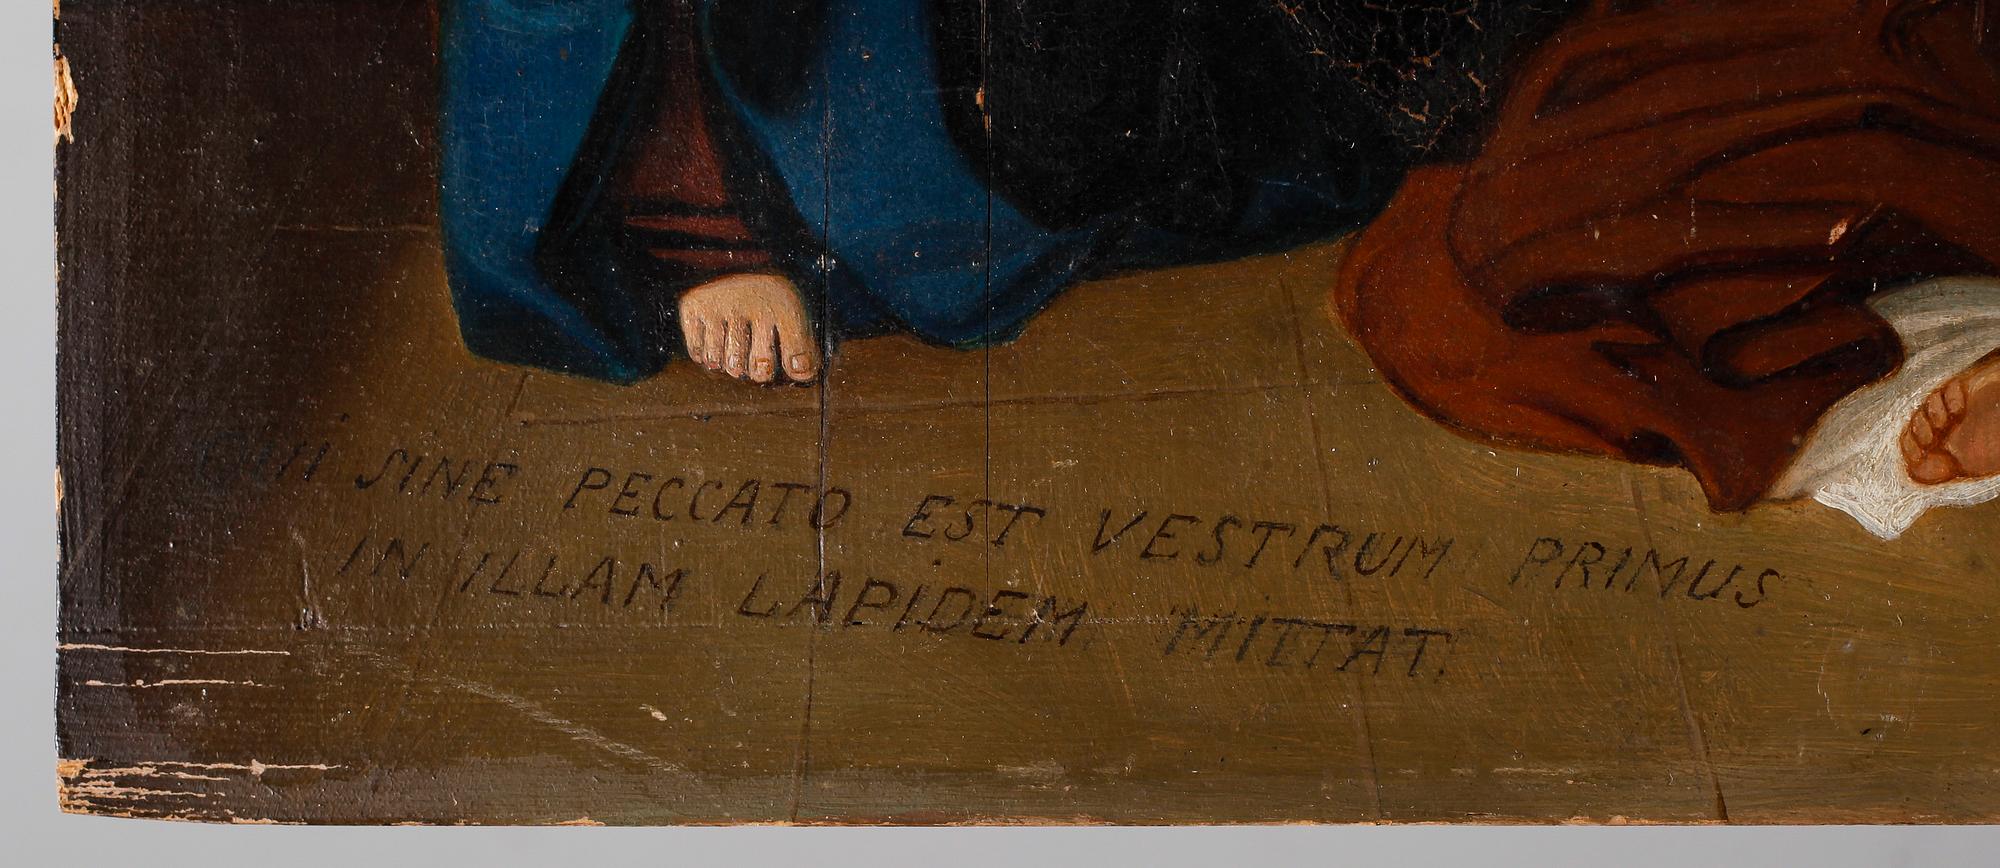 QUI SINE PECCATO EST VESTRUM PRIMUS
IN ILLAM LAPIDEM MITTAT.